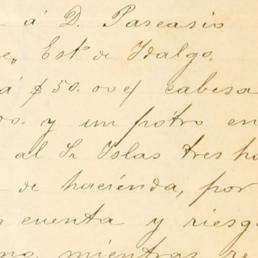 á D. Pascasio
Est. de Idalgo.
á $50.00 cabesa
y un pótro en
al Sr Islas tres
de hacienda, por
cuenta y riesg
mientras re